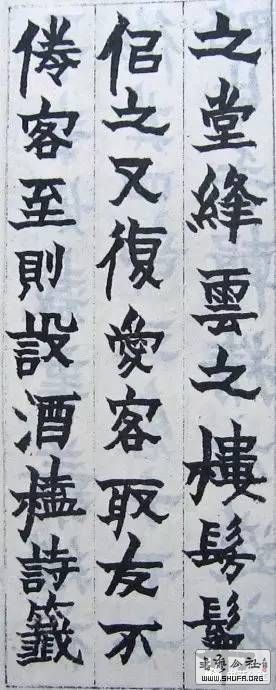 之堂絳雲之樓髣髴
侶之又復愛客取友不
倦客至則設酒榼詩籤
書藝公社
WWW.SHUFA.ORG